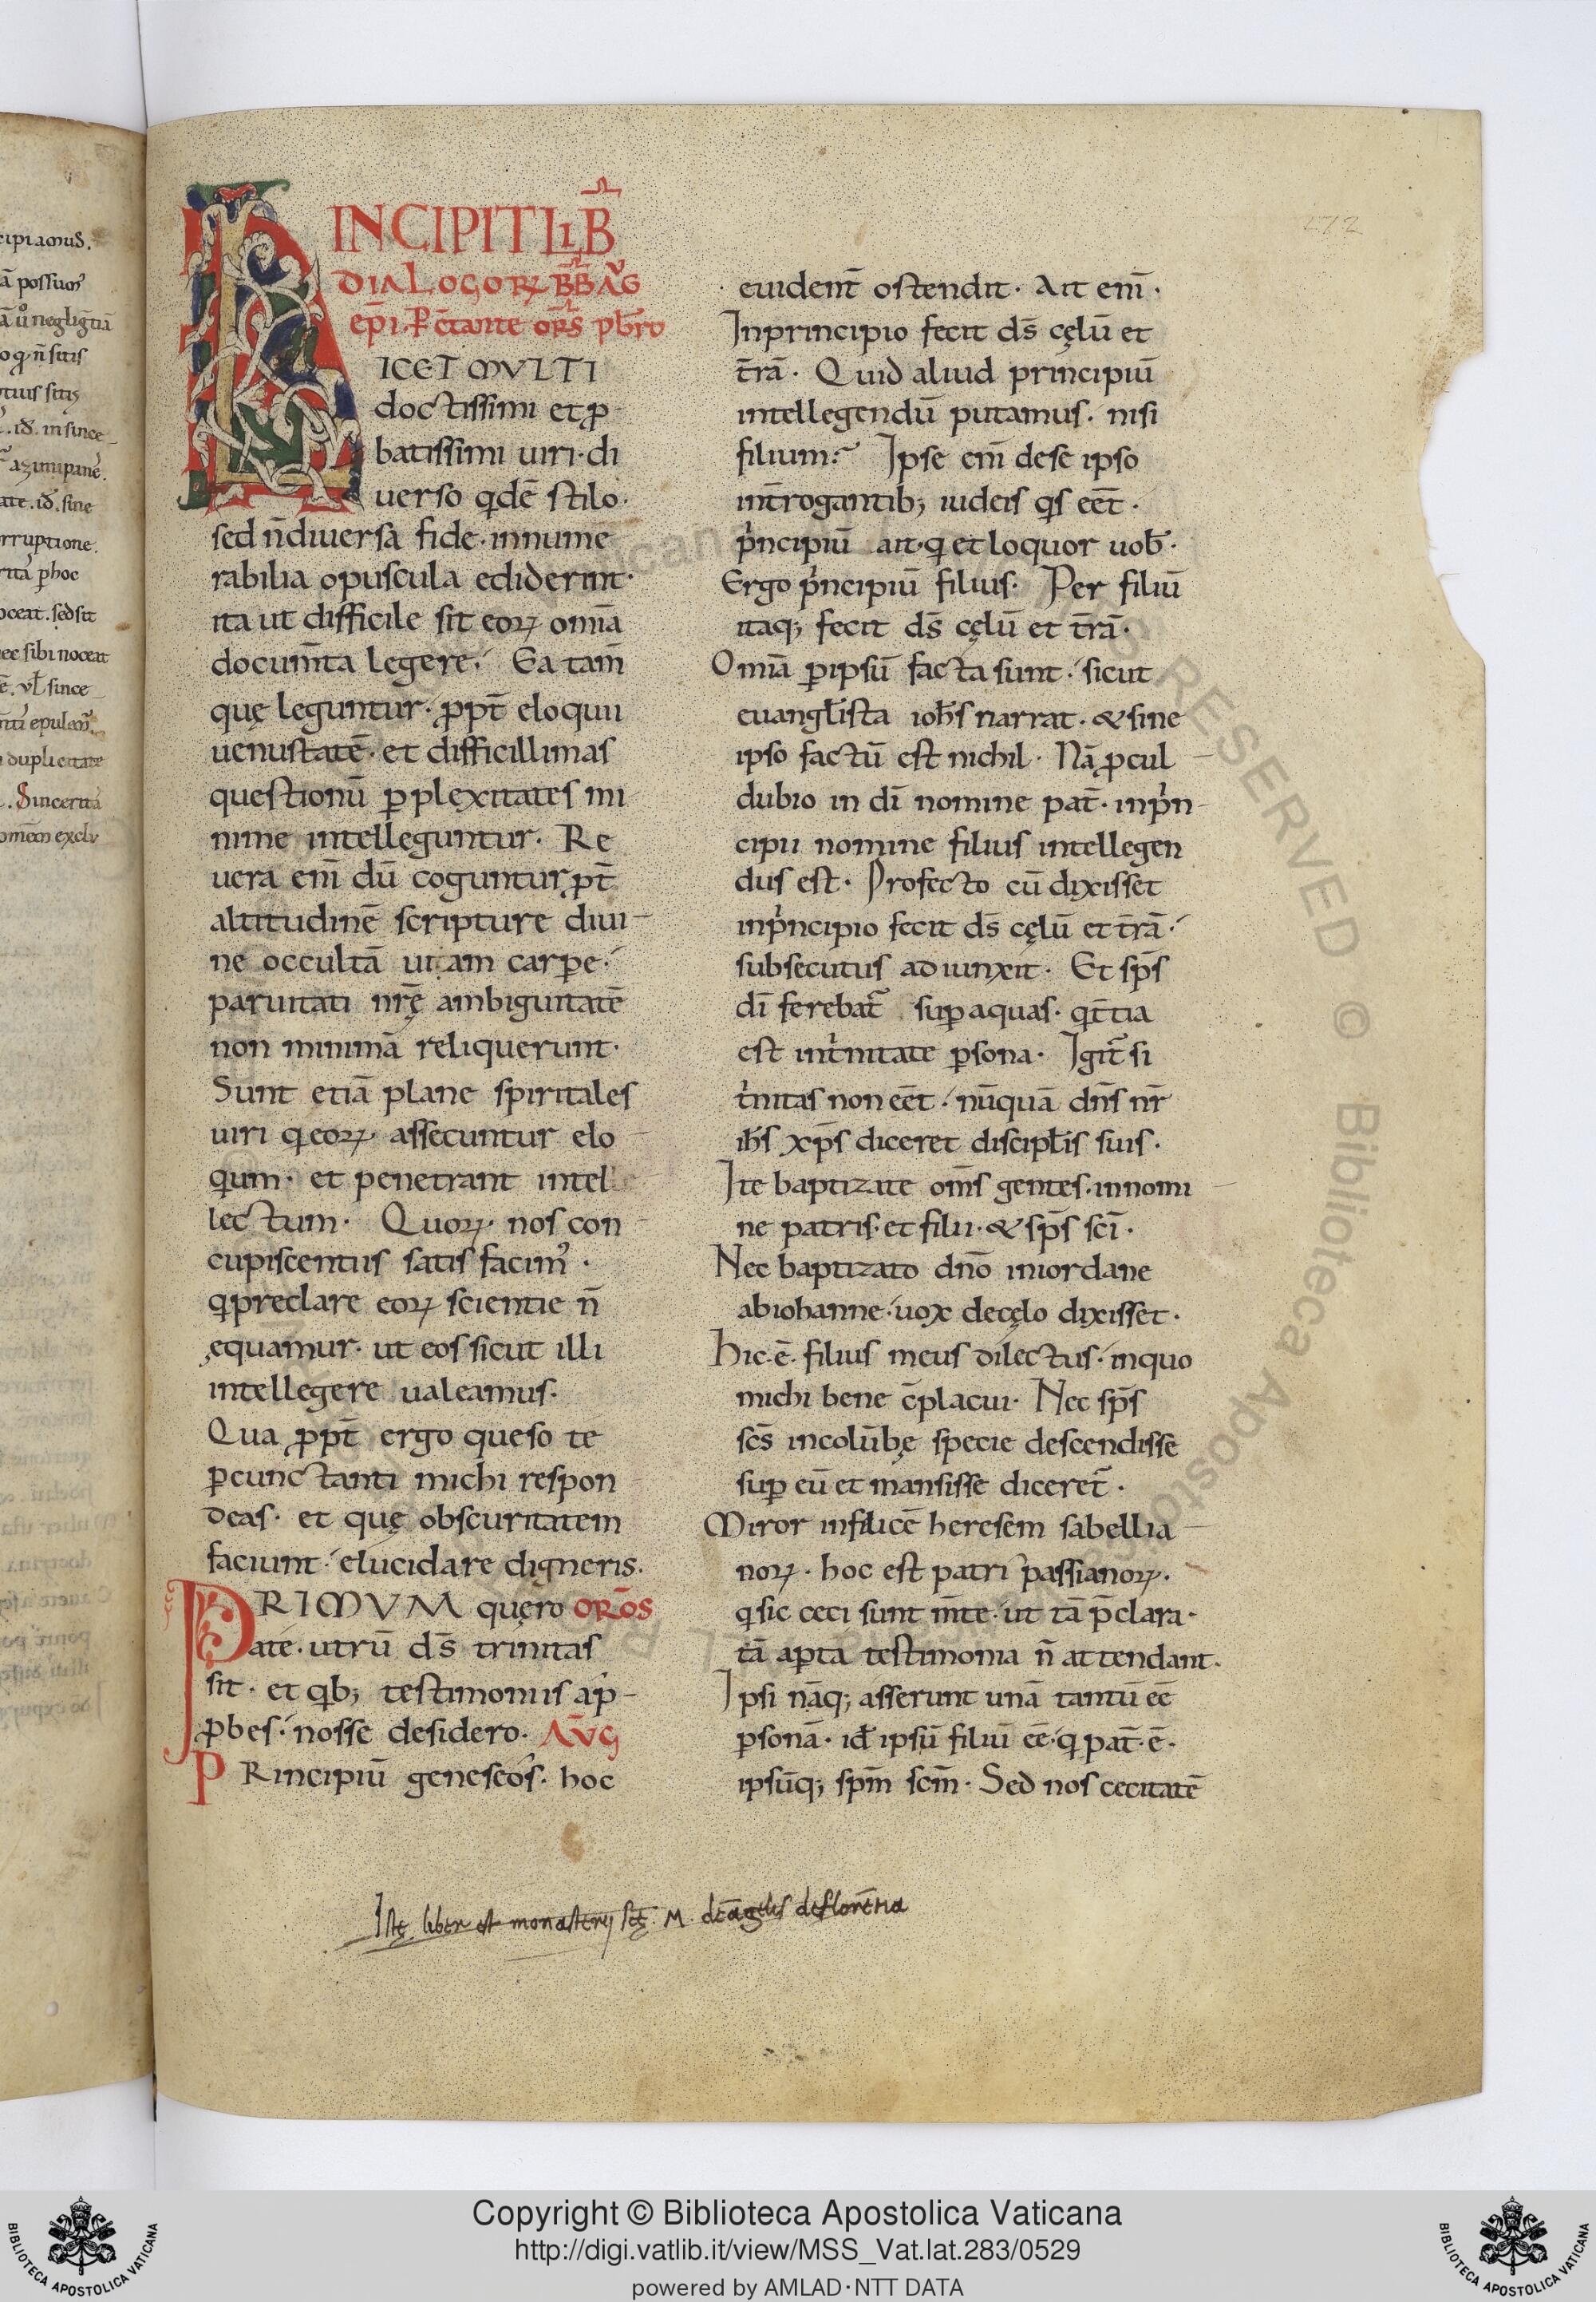 INCIPIT LIB̅
DIALOGORꝜ B̅B̅ AV̅G
ep̅i. P̱ c̅tante or̅s pb̅ro
LICET MVLTI
doctissimi et ꝓ
batissimi uiri· di
uerso qdē stilo·
sed n̄ diuersa fide· innume
rabilia opuscula ediderint·
ita ut difficile sit eoꝝ om̄ia
docum̄ta legere· Ea tam̄
quę leguntur· ꝓpt̄ eloquii
uenustatē· et difficillimas
questionū ꝑplexitates mi
nime intelleguntur· Re
uera eni̅ dū coguntur ꝓpt̄
altitudinē scripture diui-
ne occultā uitam carpe·
paruitati nr̄ę ambiguitatē
non minimā reliquerunt·
Sunt etiā plane spiritales
uiri q eoꝝ assecuntur elo
qium· et penetrant intel
lectum· Quoꝝ· nos con
cupiscentiis satis facim᾽·
q preclare eoꝝ scientie n̄
equamur· ut eos sicut illi
intellegere ualeamus·
Qua ꝓpt̄ ergo queso te
ꝑcunctanti michi respon
deas· et quę obscuritatem
faciunt· elucidare digneris.
PRIMVM quęro OR̅OS
Pate· utrū ds̄ trinitas
sit· et qb; testimoniis ap-
ꝓbes· nosse desidero· AV̅G
PRincipiū geneseos· hoc
euident̄ ostendit· Ait eni̅·
Inprincipio fecit ds̄ cęlū et
t̄rā· Quid aliud principiū
intellegendū putamus· nisi
filium? Ipse eni̅ dese ipso
int̄rogantib; iudeis qs eēt·
pⁱncipiū ait· q et loquor uob̄·
Ergo pⁱncipiū filius· Per filiū
itaq; fecit ds̄ cęlū et t̄rā·
Omīa ꝑipsū facta sunt· sicut
euangl̄ista ioh̄s narrat· & sine
ipso factū est nichil· Nā ꝓcul
dubio in dī nomine pat̄· inpⁱn-
cipii nomine filius intellegen
dus est· Profecto cū dixisset
inpⁱncipio fecit ds̄ cęlū et t̄rā·
subsecutus adiunxit· Et sp̄s
dī ferebat̄ suꝑ aquas· qt̄tia
est intⁱnitate ꝑsona· Igit̄ si
tⁱnitas non eēt· nūquā dn̄s nr̄
ih̄s xp̄s diceret discipl̄is suis·
Ite baptizate om̄s gentes· innomi
ne patris· et filii· & sp̄s sc̄i·
Nec baptizato dn̄o iniordane
abiohanne· uox decęlo dixisset·
Hic·ē· filius meus dilectus· inquo
michi bene c̄placui· Nec sp̄s
sc̄s incolūbę specie descendisse
suꝑ eū et mansisse diceret̄·
Miror infilicē heresem sabellia
noꝝ· hoc est patri passianoꝝ·
q sic ceci sunt m̄te· ut tā p̄clara·
tā aꝑta testimonia n̄ attendant·
Ipsi nāq; asserunt unā tantū eē
ꝑsonā· id ipsū filiū eē· q pat̄·ē·
ipsūq; sp̄m sc̄m· Sed nos cecitatē
Istę liber est monasterij sc̄ę M. deāgelis deflorētia
Copyright © Biblioteca Apostolica Vaticana
http://digi.vatlib.it/view/MSS_Vat.lat.283/0529
powered by AMLAD·NTT DATA
BIBLIOTECA APOSTOLICA VATICANA
BIBLIOTECA APOSTOLICA VATICANA